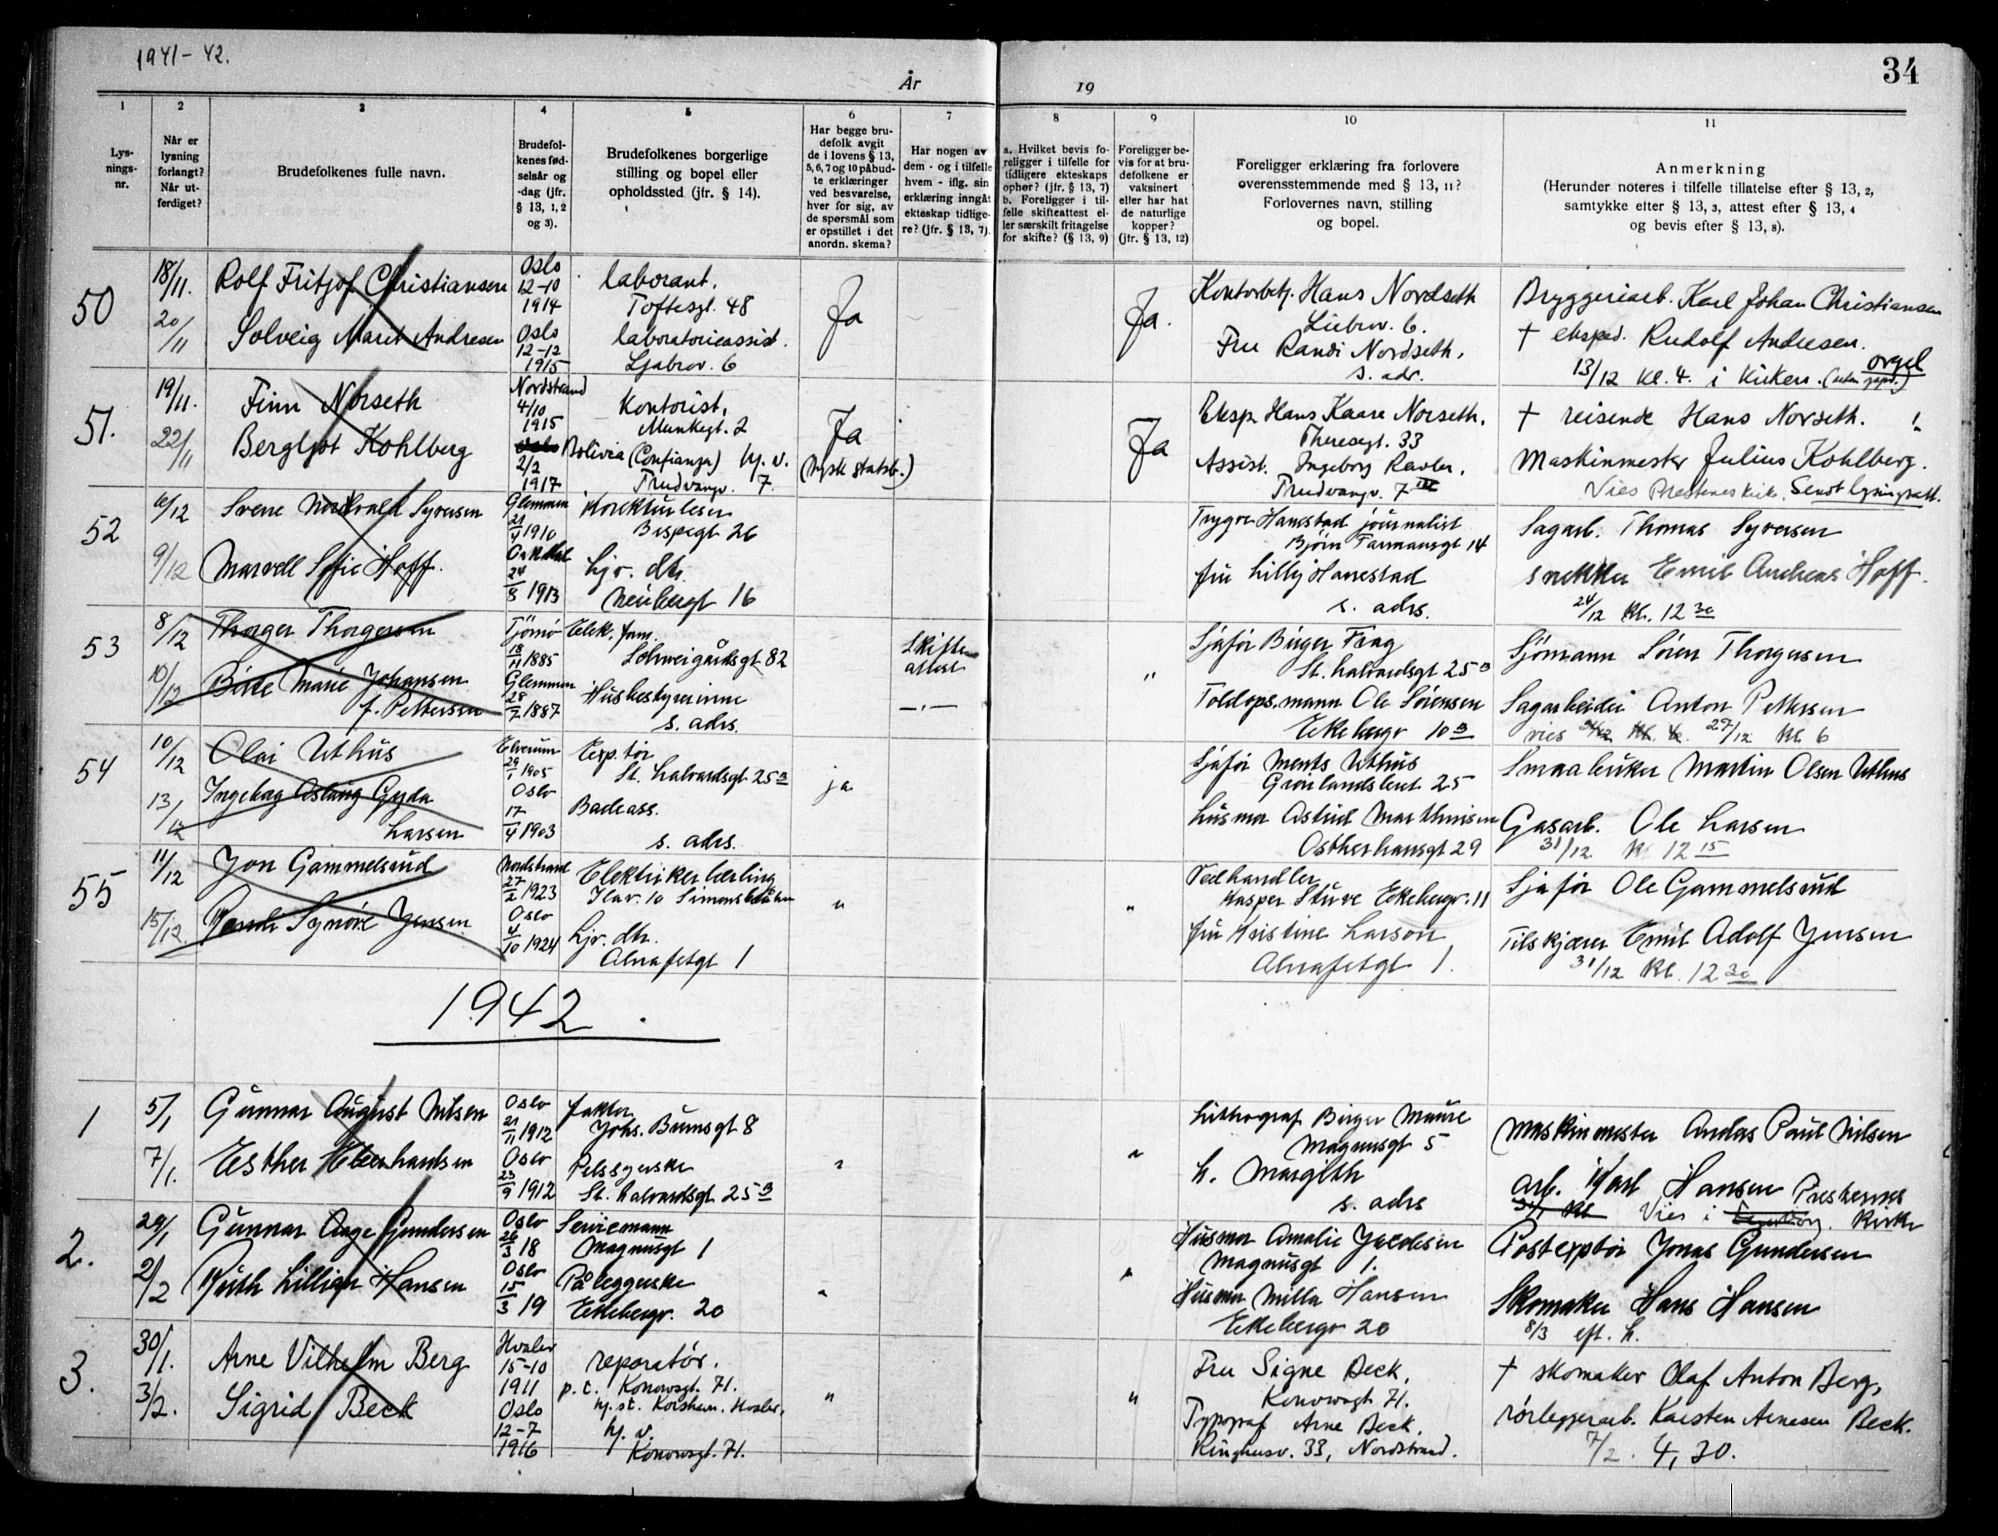 1941-42.
År
19
34
1
2
3
4
5
6
7
8
9
10
11
Lys-
nings-
nr.
Når er
lysning
forlangt?
Når ut-
ferdiget?
Brudefolkenes fulle navn.
Brudefol-
kenes fød-
selsår og
-dag (jfr.
§ 13, 1, 2
og 3).
Brudefolkenes borgerlige
stilling og bopel eller
opholdssted (jfr. § 14).
Har begge bru-
defolk avgit
de i lovens § 13,
5, 6, 7 og 10 påbud-
te erklæringer
ved besvarelse,
hver for sig, av
de spørsmål som
er opstillet i det
anordn. skema?
Har nogen av
dem - og i tilfelle
hvem - iflg. sin
erklæring inngåt
ekteskap tidlige-
re? (jfr. § 13, 7).
a. Hvilket bevis fo-
religger i tilfelle for
tidligere ekteskaps
ophør? (jfr. § 13, 7)
b. Foreligger i til-
felle skifteattest el-
ler særskilt fritagelse
for skifte? (§ 13, 9)
Foreligger be-
vis for at bru-
defolkene er
vaksinert
eller har hat
de naturlige
kopper?
(jfr. § 13, 12)
Foreligger erklæring fra forlovere
overensstemmende med § 13, 11?
Forlovernes navn, stilling
og bopel.
Anmerkning
(Herunder noteres i tilfelle tillatelse efter § 13, 2,
samtykke efter § 13, 3, attest efter § 13, 4
og bevis efter § 13, 8).
50
18/11.
20/11
Rolf Fritjof Christiansen
Solveig Marit Andresen
Oslo
12-10
1914
Oslo
12-12
1915
laborant.
Toftesgt. 48
laboratorieassist.
Ljabrov. 6
Ja
Ja.
Kontorbetj. Hans Nordseth
Liabrov. 6.
Fru Randi Nordseth,
s. adr.
Bryggeriarb. Karl Johan Christiansen
† eksped. Rudolf Andresen.
orgel
13/12 kl. 4. i kirken.
51.
19/11.
22/11
Finn Norseth
Bergljot Kohlberg
Nordstrand
4/10
1915
2/2
1917
Kontorist,
Munkegt. 2
Bolivia (Confianza) hj. v.
Trudvangv. 7.
Ja
(tysk statsb.)
Ja
Eksp. Hans Kaare Norseth,
Theresegt. 33
Assist. Ingeborg Ravler,
Trudvangv. 7 III
† reisende Hans Norseth.
Maskinmester Julius Kohlberg.
Vies Prestenes kirke. Sendt lysningsatt.
52
6/12
9/12
Svene Nordvald Syversen
Marvell Sofie Hoff.
Glemmen
21/4 1910
24/8 1913
Korrekturleser
Bispegt 26
hjv. dtr.
Neubergt 16
Trygve Hanestad journalist
Bjørn Farmansgt 14
fru Lilly Hanestad
s. adrs.
Sagarb. Thomas Syversen
snekker Emil Andreas Hoff.
24/12 kl. 12 30
53
8/12
10/12
Thorger Thorgersen
Birte Marie Johansen
f. Pettersen
Tjömö
18/11 1885
Glemmen
28/7 1887
Elek. form.
Schweigårdsgt 82
Husbestyrerinne
s. adrs.
Skifte
attest
— " —
"
Sjåfør Birger Frag
St. halvardsgt 25 B
Toldops.mann Ole Sørensen
Ekebergv 10 B
Sjömann Sören Thorgersen
Sagarbeider Anton Pettersen
vies 27/12 kl 6
54
10/12
13/12
Olai Uthus
Ingeborg Aslaug Gyda
Larsen
Elverum
29/1 1905
Oslo
17/4 1903
Exp.tør
St. halvardsgt 25 B
Badeass.
s. adrs.
ja
Sjåfør Ments Uthus
Grønlandsleret 25
husmor Astrid Marthinsen
Osterhausgt 29
Smaabruker Martin Olsen Uthus
Gasarb. Ole Larsen
31/12 kl 12 15
55
11/12
15/12.
Jon Gammelsrud
Randi Synöve Jensen
Nordstrand
27/2 1923
Oslo
4/10 1924
Elektrikerlærling
hjv. dtr.
Alnafetgt 1
"
"
Vedhandler
Kasper Stuve Ekebergv. 11
fru Kristine Larson
Alnafetgt 1.
Sjåfør Ole Gammelsrud
Filskjærer Emil Adolf Jensen
31/12 kl. 12 30
1942.
1
5/1
7/1.
Gunnar August Nilsen
Esther Eberhardsen
Oslo
21/11 1912
Oslo
23/9 1912
faktor
Johs. Brunsgt 8
Pelssyerske
St. halvardsgt. 25 B
"
"
Lithograf Birger Maure
Magnusgt 5
h. Margith
s. adrs
Maskinmester Anders Paul Nilsen
arb. Karl Hansen
Vies i Prestenes Kirke
2.
29/1
2/2
Gunnar Aage Gundersen
Ruth Lillian Hansen
Oslo
26/3 18
Oslo
15/3 19
Servicemann
Magnusgt 1
Påleggerske
Ekebergv. 20
"
"
Husmor Amalie Jacobsen
Magnusgt 1.
Husmor Milla Hansen
Ekebergv 20
Postexptør Jonas Gundersen
Skomaker Hans Hansen
8/3 eft. h.
3.
30/1.
3/2.
Arne Vilhelm Berg
Sigrid Beck
Hvaler
15-10
1911
Oslo
12-7
1916
reparatør.
p. t. Konowsgt. 71.
hj. st. Korshavn. Hvaler,
hj. v.
Konowsgt. 71.
"
"
Fru Signe Beck,
Konowsgt 71.
Typograf Arne Beck,
Ringhusv. 33, Nordstrand.
† skomaker Olaf Anton Berg,
rørleggerarb. Karsten Arnesen Beck.
7/2. 4,30.